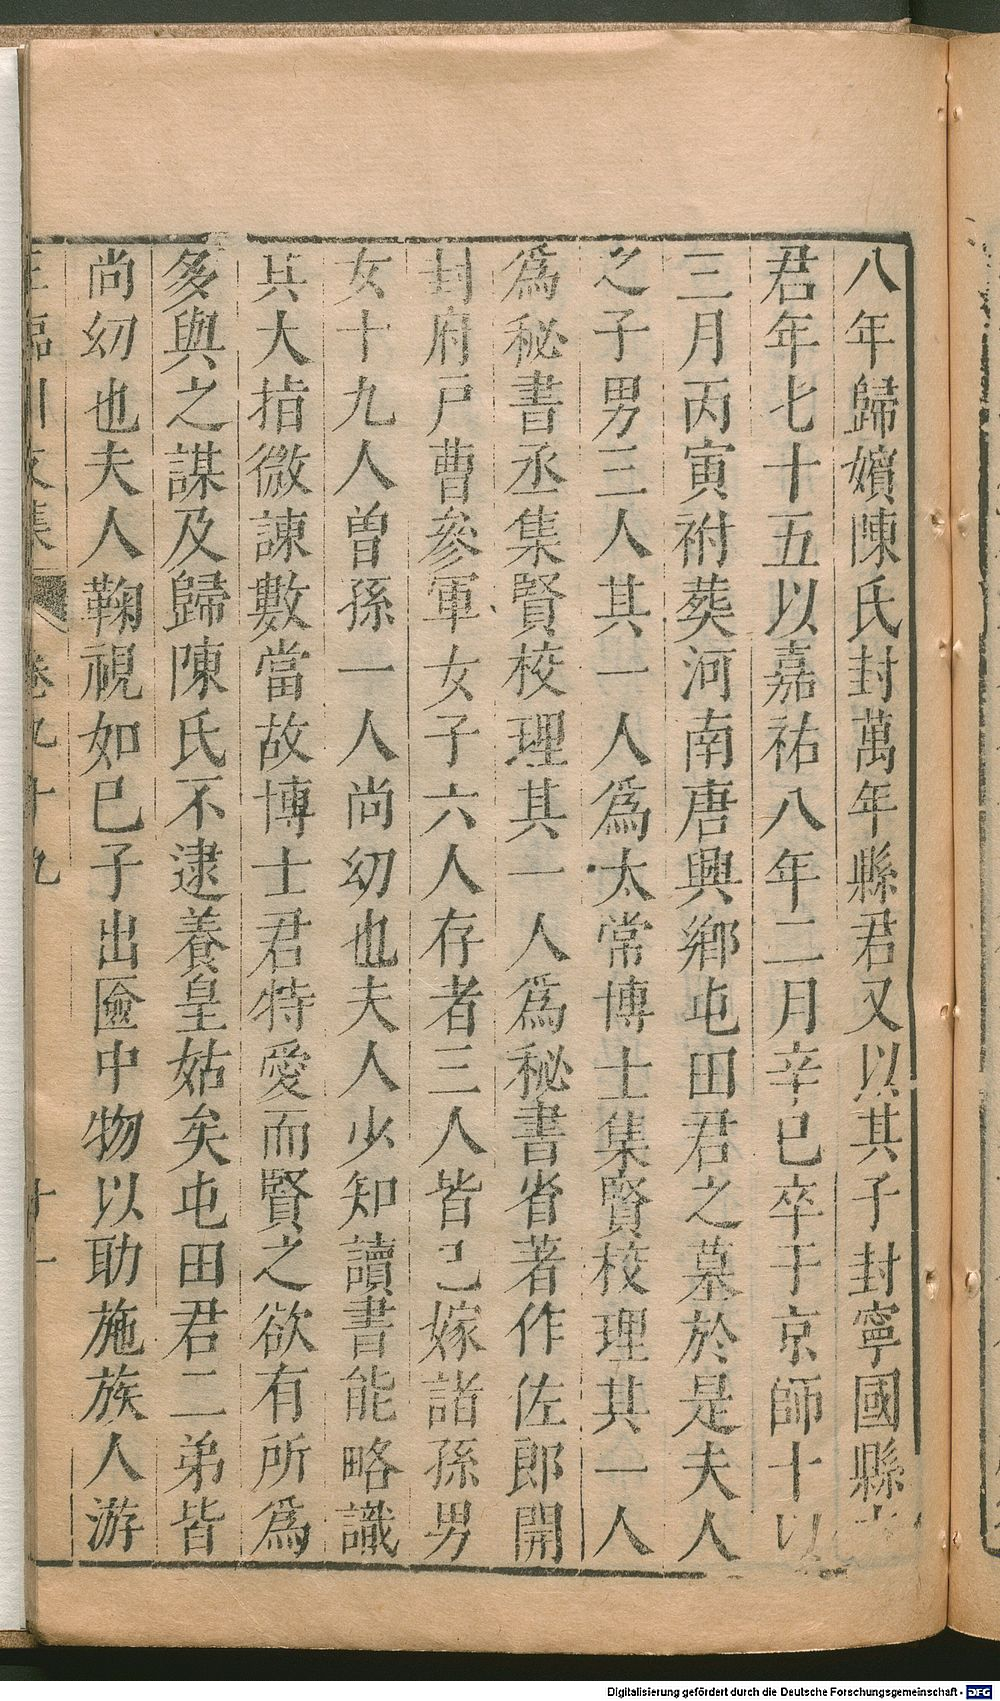 八年歸嬪陳氏封萬年縣君又以其子封寧國縣
君年七十五以嘉祐八年二月辛巳卒于京師十以
三月丙寅祔葬河南唐興鄉屯田君之墓於是夫人
之子男三人其一人爲太常博士集賢校理其一人
爲秘書丞集賢校理其一人爲秘書省著作佐郎開
封府戸曹參軍女子六人存者三人皆已嫁諸孫男
女十九人曽孫一人尚幼也夫人少知讀書能略識
其大指微諫數當故博士君特愛而賢之欲有所爲
多與之謀及歸陳氏不逮養皇姑矣屯田君二弟皆
尚幼也夫人鞠視如已子出匳中物以助施族人游
王臨川文集 卷九十九 十一
Digitalisierung gefördert durch die Deutsche Forschungsgemeinschaft - DFG